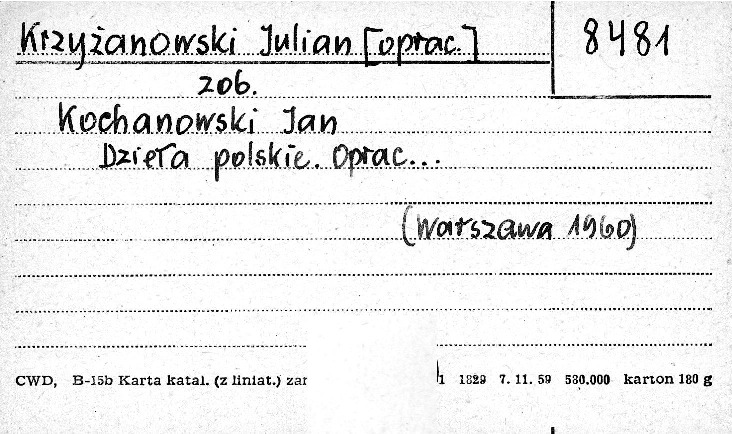 Krzyżanowski Julian [oprac.]
8481
zob.
Kochanowski Jan
Dzieła polskie. Oprac...
(Warszawa 1960)
CWD, B-15b Karta katal. (z liniat.) zar
1 1829 7. 11. 59 530.000 karton 180 g